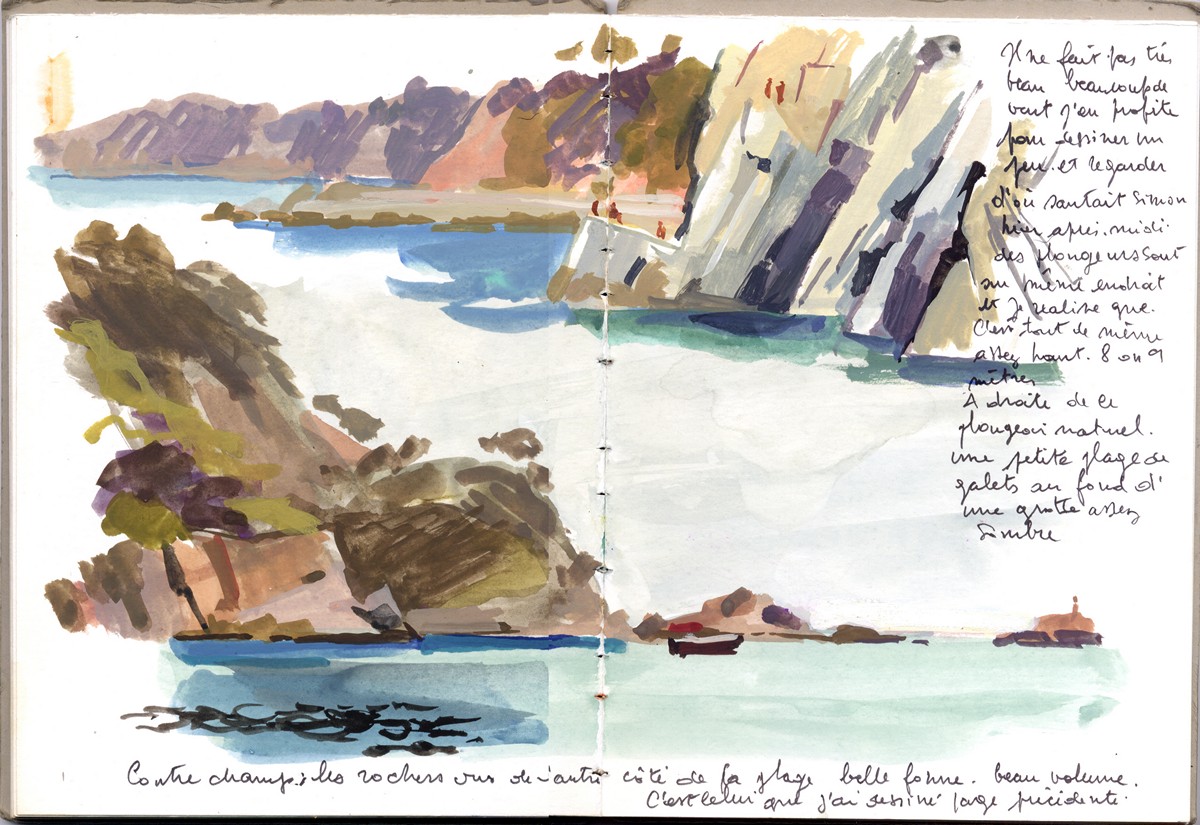 Il ne fait pas très
beau beaucoup de
vent j'en profite
pour dessiner un
peu. et regarder
d'où sautait Simon
hier après.midi.
des plongeurs sont
au même endroit
et je realise que.
C'est tout de même
assez haut. 8 ou 9
mètres
A droite de ce
plongeoir naturel.
une petite plage de
galets au fond d'
une grotte assez
Sombre
Contre champ: les rochers vus de l'autre côté de la plage belle forme. beau volume.
C'est celui que j'ai dessiné page précédente.